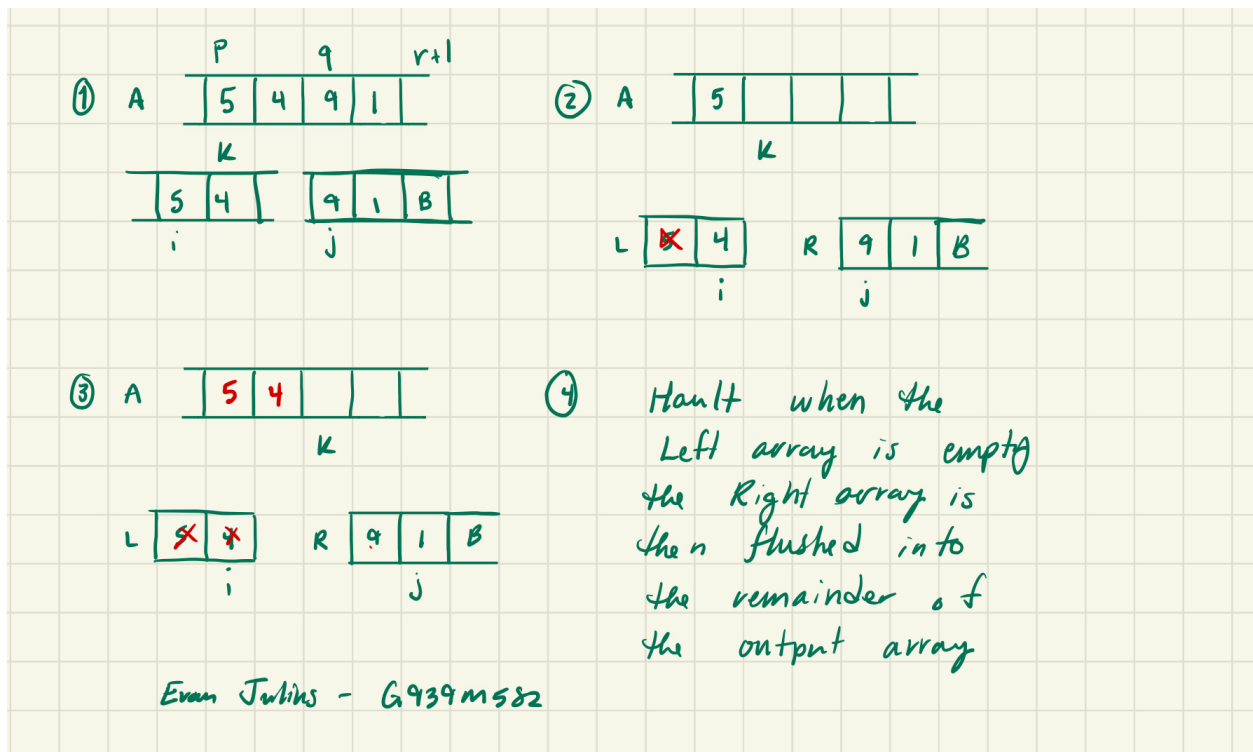 P q r+1
① A 5 4 9 1
K
5 4 9 1 B
i j
② A 5
K
L 5 4 R 9 1 B
i j
③ A 5 4
K
L 5 4 R 9 1 B
i j
④ Hault when the
Left array is empty
the Right array is
then flushed into
the remainder of
the output array
Evan Julius - G939M582